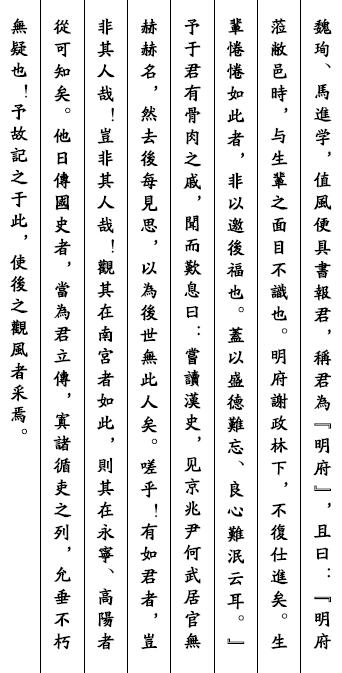 魏珣、馬進学，值風便具書報君，稱君為『明府』，且曰：『明府
蒞敝邑時，与生輩之面目不識也。明府謝政林下，不復仕進矣。生
輩惓惓如此者，非以邀後福也。蓋以盛德難忘、良心難泯云耳。』
予于君有骨肉之戚，聞而歎息曰：嘗讀漢史，见京兆尹何武居官無
赫赫名，然去後每見思，以為後世無此人矣。嗟乎！有如君者，豈
非其人哉！豈非其人哉！觀其在南宮者如此，則其在永寧、高陽者
從可知矣。他日傳國史者，當為君立傳，寘諸循吏之列，允垂不朽
無疑也！予故記之于此，使後之觀風者采焉。